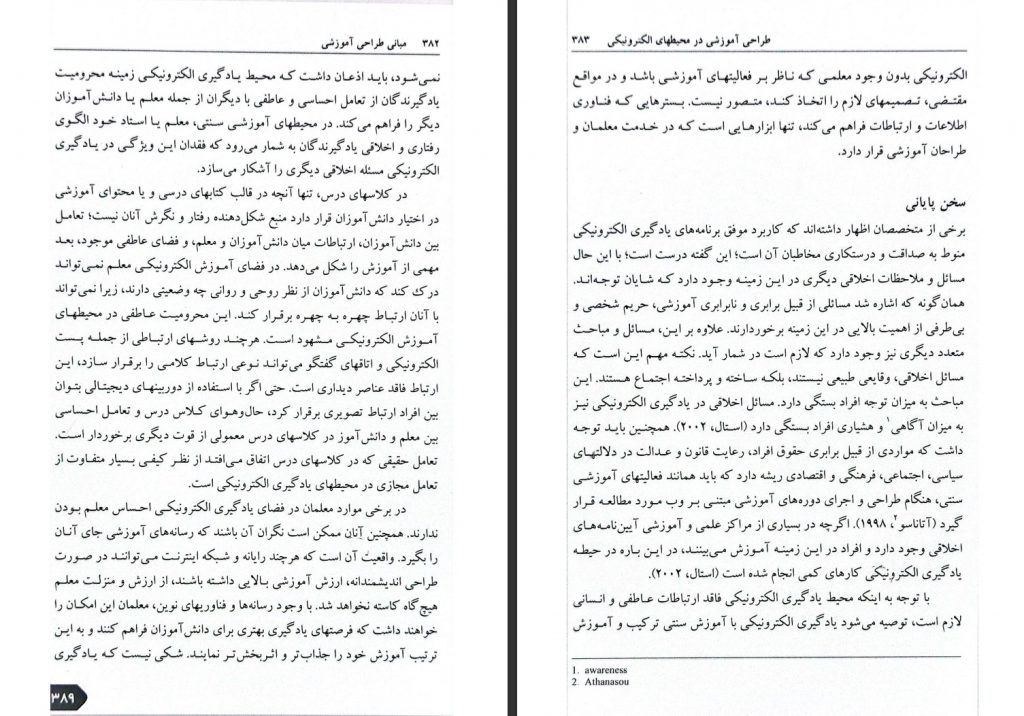 ۳۸۲ مبانی طراحی آموزشی
نمی‌شود، باید اذعان داشت که محیط یادگیری الکترونیکی زمینه محرومیت
یادگیرندگان از تعامل احساسی و عاطفی با دیگران از جمله معلم یا دانش‌آموزان
دیگر را فراهم می‌کند. در محیطهای آموزشی سنتی، معلم یا استاد خود الگوی
رفتاری و اخلاقی یادگیرندگان به شمار می‌رود که فقدان این ویژگی در یادگیری
الکترونیکی مسئله اخلاقی دیگری را آشکار می‌سازد.
در کلاسهای درس، تنها آنچه در قالب کتابهای درسی و یا محتوای آموزشی
در اختیار دانش‌آموزان قرار دارد منبع شکل‌دهنده رفتار و نگرش آنان نیست؛ تعامل
بین دانش‌آموزان، ارتباطات میان دانش‌آموزان و معلم، و فضای عاطفی موجود، بعد
مهمی از آموزش را شکل می‌دهد. در فضای آموزش الکترونیکی معلم نمی‌تواند
درک کند که دانش‌آموزان از نظر روحی و روانی چه وضعیتی دارند، زیرا نمی‌تواند
با آنان ارتباط چهره به چهره برقرار کند. این محرومیت عاطفی در محیطهای
آموزش الکترونیکی مشهود است. هرچند روشهای ارتباطی از جمله پست
الکترونیکی و اتاقهای گفتگو می‌تواند نوعی ارتباط کلامی را برقرار سازد، این
ارتباط فاقد عناصر دیداری است. حتی اگر با استفاده از دوربینهای دیجیتالی بتوان
بین افراد ارتباط تصویری برقرار کرد، حال‌وهوای کلاس درس و تعامل احساسی
بین معلم و دانش‌آموز در کلاسهای درس معمولی از قوت دیگری برخوردار است.
تعامل حقیقی که در کلاسهای درس اتفاق می‌افتد از نظر کیفی بسیار متفاوت از
تعامل مجازی در محیطهای یادگیری الکترونیکی است.
در برخی موارد معلمان در فضای یادگیری الکترونیکی احساس معلم بودن
ندارند. همچنین آنان ممکن است نگران آن باشند که رسانه‌های آموزشی جای آنان
را بگیرد. واقعیت آن است که هرچند رایانه و شبکه اینترنت می‌توانند در صورت
طراحی اندیشمندانه، ارزش آموزشی بالایی داشته باشند، از ارزش و منزلت معلم
هیچ‌گاه کاسته نخواهد شد. با وجود رسانه‌ها و فناوریهای نوین، معلمان این امکان را
خواهند داشت که فرصتهای یادگیری بهتری برای دانش‌آموزان فراهم کنند و به این
ترتیب آموزش خود را جذاب‌تر و اثربخش‌تر نمایند. شکی نیست که یادگیری
۳۸۹
طراحی آموزشی در محیطهای الکترونیکی ۳۸۳
الکترونیکی بدون وجود معلمی که ناظر بر فعالیتهای آموزشی باشد و در مواقع
مقتضی، تصمیمهای لازم را اتخاذ کند، متصور نیست. بسترهایی که فناوری
اطلاعات و ارتباطات فراهم می‌کند، تنها ابزارهایی است که در خدمت معلمان و
طراحان آموزشی قرار دارد.
سخن پایانی
برخی از متخصصان اظهار داشته‌اند که کاربرد موفق برنامه‌های یادگیری الکترونیکی
منوط به صداقت و درستکاری مخاطبان آن است؛ این گفته درست است؛ با این حال
مسائل و ملاحظات اخلاقی دیگری در این زمینه وجود دارد که شایان توجه‌اند.
همان‌گونه که اشاره شد مسائلی از قبیل برابری و نابرابری آموزشی، حریم شخصی و
بی‌طرفی از اهمیت بالایی در این زمینه برخوردارند. علاوه بر این، مسائل و مباحث
متعدد دیگری نیز وجود دارد که لازم است در شمار آید. نکته مهم این است که
مسائل اخلاقی، وقایعی طبیعی نیستند، بلکه ساخته و پرداخته اجتماع هستند. این
مباحث به میزان توجه افراد بستگی دارد. مسائل اخلاقی در یادگیری الکترونیکی نیز
به میزان آگاهی۱ و هشیاری افراد بستگی دارد (استال، ۲۰۰۲). همچنین باید توجه
داشت که مواردی از قبیل برابری حقوق افراد، رعایت قانون و عدالت در دلالتهای
سیاسی، اجتماعی، فرهنگی و اقتصادی ریشه دارد که باید همانند فعالیتهای آموزشی
سنتی، هنگام طراحی و اجرای دوره‌های آموزشی مبتنی بر وب مورد مطالعه قرار
گیرد (آتاناسو۲، ۱۹۹۸). اگرچه در بسیاری از مراکز علمی و آموزشی آیین‌نامه‌های
اخلاقی وجود دارد و افراد در این زمینه آموزش می‌بینند، در این باره در حیطه
یادگیری الکترونیکی کارهای کمی انجام شده است (استال، ۲۰۰۲).
با توجه به اینکه محیط یادگیری الکترونیکی فاقد ارتباطات عاطفی و انسانی
لازم است، توصیه می‌شود یادگیری الکترونیکی با آموزش سنتی ترکیب و آموزش
1. awareness
2. Athanasou